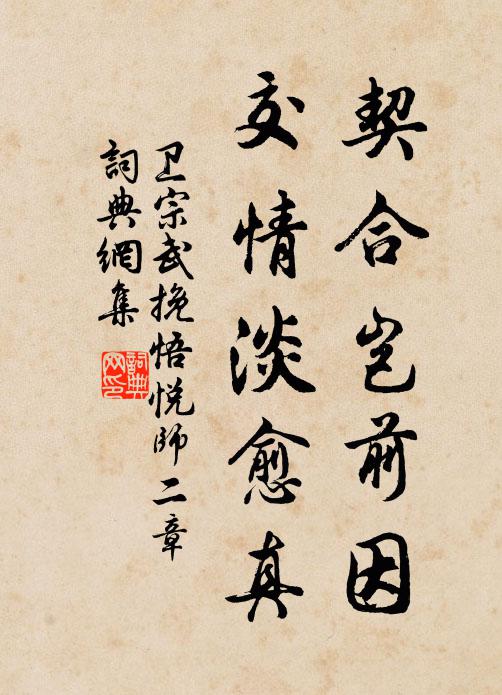 契合岂前因
交情淡愈真
卫宗武挽悟悦师二章
詞典網集
詞典网印